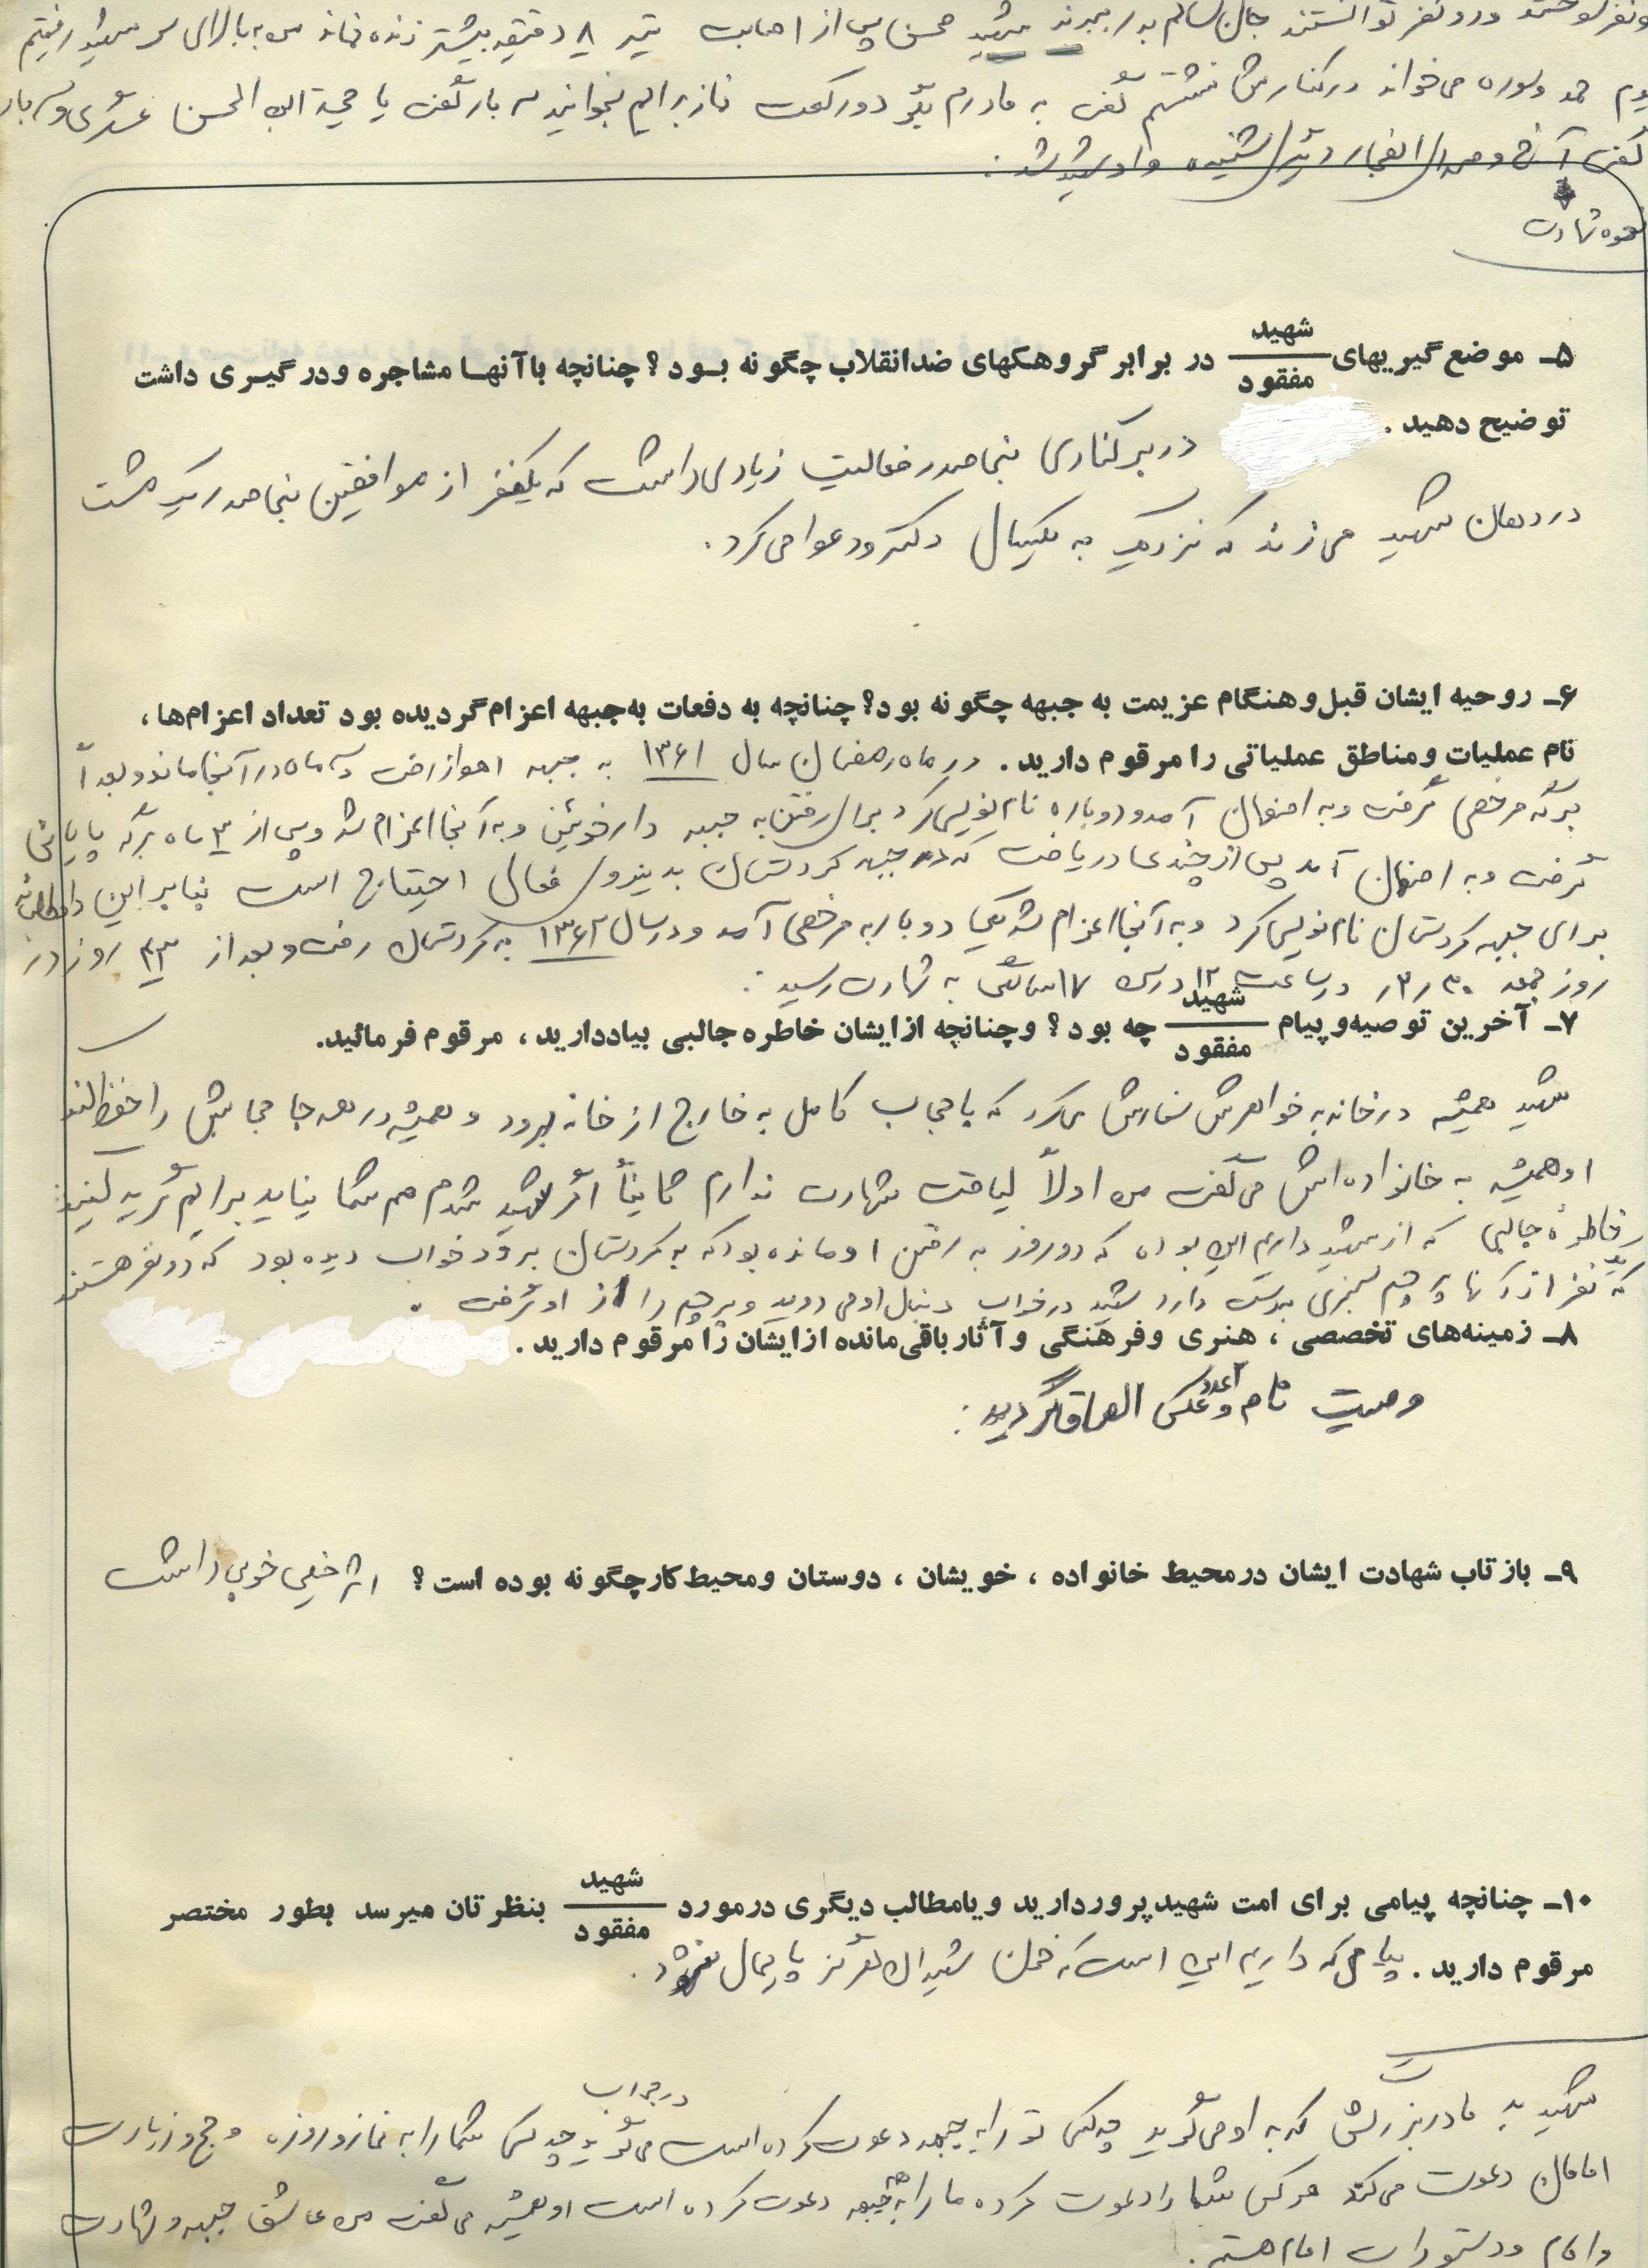 دو نفر توانستند جان سالم بدر ببرند شهید محسن پس از اصابت تیر ۸ دقیقه بیشتر زنده نماند من به بالای سر شهید رفتیم
حمد و سوره می‌خواند در کنارش نشستم گفت به مادرم بگو دو رکعت نماز برایم بخوانید سه بار گفت یا حجة ابن الحسن عسگری و سه بار
گفت آخ و صدای انفجار دیگر شنیده و او شهید شد.
نحوه شهادت
۵ـ موضع گیریهای شهید / مفقود در برابر گروهکهای ضدانقلاب چگونه بود؟ چنانچه با آنها مشاجره و درگیری داشت
توضیح دهید. در برکناری بنی‌صدر فعالیت زیادی داشت که یکنفر از موافقین بنی‌صدر یک مشت
در دهان شهید می‌زند که نزدیک به یکسال دکتر و دعوا می‌کرد.
۶ـ روحیه ایشان قبل و هنگام عزیمت به جبهه چگونه بود؟ چنانچه به دفعات به جبهه اعزام گردیده بود تعداد اعزام‌ها،
نام عملیات و مناطق عملیاتی را مرقوم دارید. در ماه رمضان سال ۱۳۶۱ به جبهه اهواز رفت و سه ماه در آنجا ماند و بعداً
برگه مرخصی گرفت و به اصفهان آمد و دوباره نام‌نویسی کرد برای رفتن به جبهه دارخوئین و به آنجا اعزام شد و پس از ۳ ماه برگه پایانی
گرفت و به اصفهان آمد پس از چندی دریافت که در جبهه کردستان به نیروی فعال احتیاج است بنابراین داوطلبانه
برای جبهه کردستان نام‌نویسی کرد و به آنجا اعزام شد یکبار دوباره به مرخصی آمد و در سال ۱۳۶۲ به کردستان رفت و بعد از ۴۳ روز در
روز جمعه ۳۰ر۳ر در ساعت ۱۲ در سن ۱۷ سالگی به شهادت رسید.
۷ـ آخرین توصیه و پیام شهید / مفقود چه بود؟ و چنانچه از ایشان خاطره جالبی بیاد دارید، مرقوم فرمائید.
شهید همیشه در خانه به خواهرش سفارش می‌کرد که با حجاب کامل به خارج از خانه برود و همیشه در همه جا حجابش را حفظ کند
او همیشه به خانواده‌اش می‌گفت من اولاً لیاقت شهادت ندارم ثانیاً اگر شهید شدم هم شما نباید برایم گریه کنید
خاطرهٔ جالبی که از شهید داریم این بوده که دو روز به رفتن او مانده بود که به کردستان برود خواب دیده بود که دو نفر هستند
که یک نفر از آنها پرچم سبزی بدست دارد شهید در خواب دنبال او می‌دوید و پرچم را از او گرفت.
۸ـ زمینه‌های تخصصی، هنری و فرهنگی و آثار باقی‌مانده از ایشان را مرقوم دارید.
وصیت نامه و عکس الصاق گردید.
۹ـ بازتاب شهادت ایشان در محیط خانواده، خویشان، دوستان و محیط کار چگونه بوده است؟ اثر خیلی خوبی داشت
۱۰ـ چنانچه پیامی برای امت شهیدپرور دارید و یا مطالب دیگری درمورد شهید / مفقود بنظرتان میرسد بطور مختصر
مرقوم دارید. پیامی که داریم این است که خون شهیدان هرگز پایمال نشود.
شهید به مادربزرگش که به او می‌گوید چه کسی تو را به جبهه دعوت کرده است در جواب می‌گوید چه کسی شما را به نماز و روزه و حج و زیارت
امامان دعوت می‌کند هر کس شما را دعوت کرده ما را به جبهه دعوت کرده است او همیشه می‌گفت من عاشق جبهه و شهادت
و امام و دستورات امام هستم.